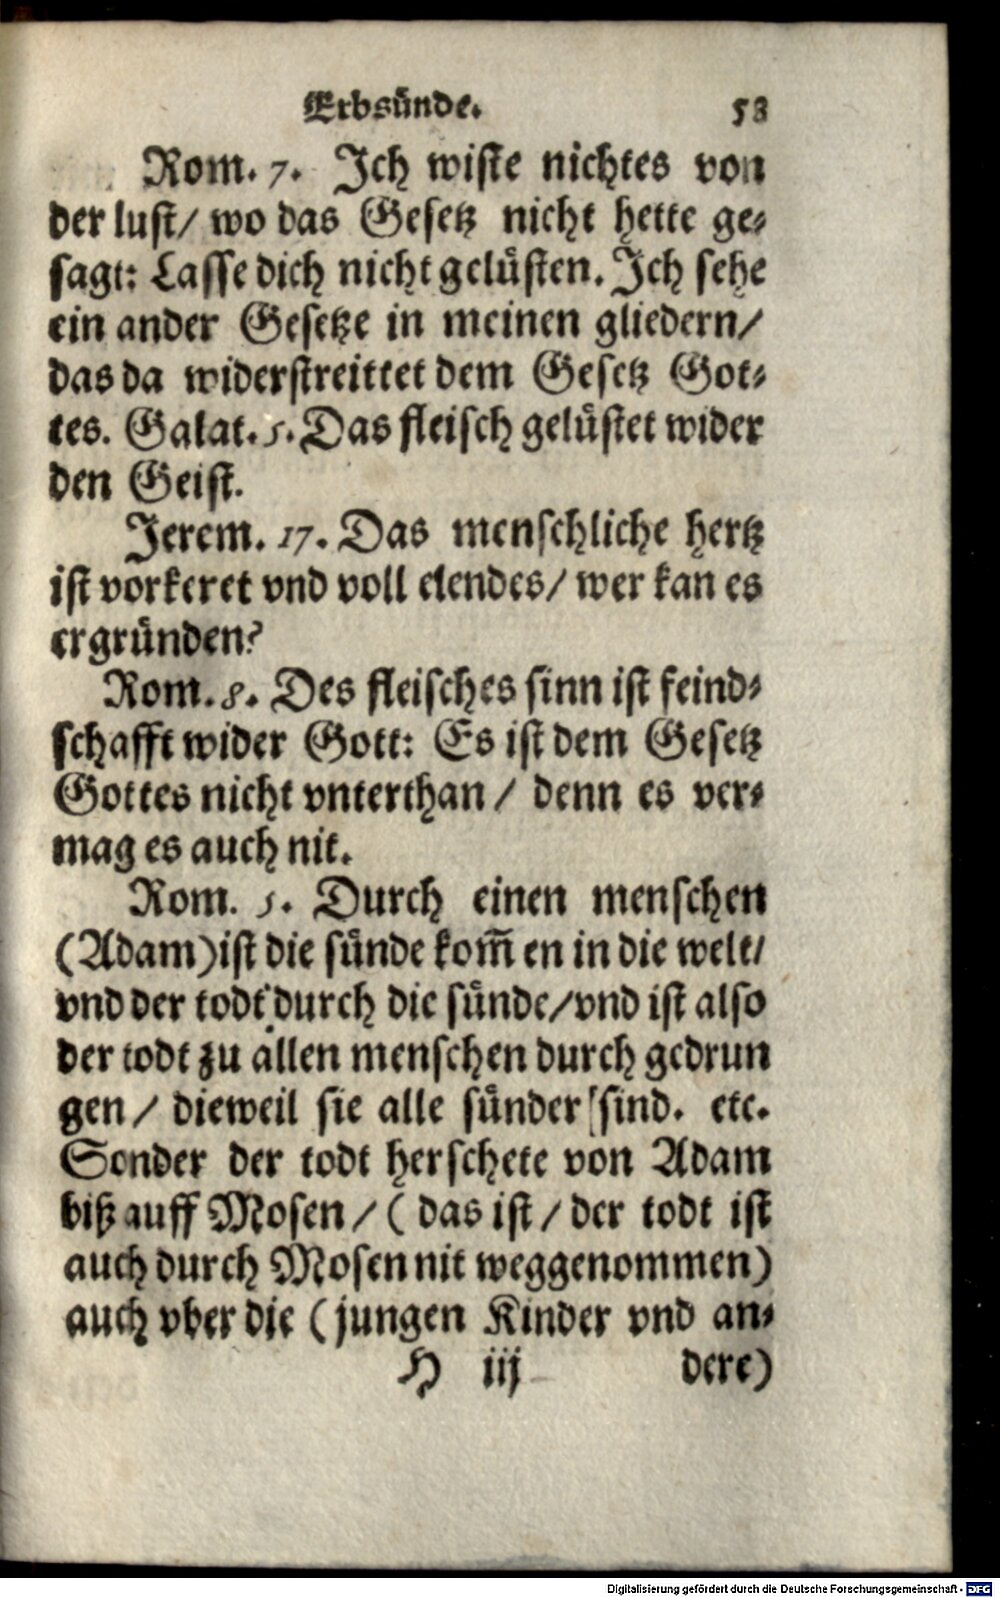 Erbsünde. 58
Rom. 7. Ich wiste nichtes von
der lust/ wo das Gesetz nicht hette ge-
sagt: Lasse dich nicht gelüsten. Ich sehe
ein ander Gesetze in meinen gliedern/
das da widerstreittet dem Gesetz Got-
tes. Galat. 5. Das fleisch gelüstet wider
den Geist.
Jerem. 17. Das menschliche hertz
ist vorkeret vnd voll elendes/ wer kan es
ergründen?
Rom. 8. Des fleisches sinn ist feind-
schafft wider Gott: Es ist dem Gesetz
Gottes nicht vnterthan/ denn es ver-
mag es auch nit.
Rom. 5. Durch einen menschen
(Adam) ist die sünde kom̃en in die welt/
vnd der todt durch die sünde/ vnd ist also
der todt zu allen menschen durch gedrun
gen/ dieweil sie alle sünder sind. etc.
Sonder der todt herschete von Adam
biß auff Mosen/ (das ist/ der todt ist
auch durch Mosen nit weggenommen)
auch vber die (jungen Kinder vnd an-
H iij dere)
Digitalisierung gefördert durch die Deutsche Forschungsgemeinschaft - DFG